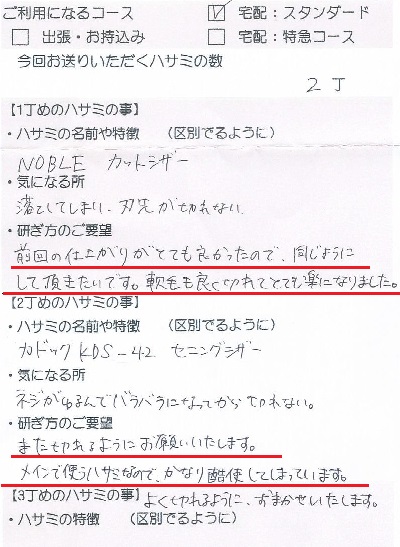 ご利用になるコース ☑ 宅配：スタンダード
□ 出張・お持込み □ 宅配：特急コース
今回お送りいただくハサミの数
2丁
【1丁めのハサミの事】
・ハサミの名前や特徴 （区別でるように）
NOBLE カットシザー
・気になる所
落としてしまい、刃先が切れない
・研ぎ方のご要望
前回の仕上がりがとても良かったので、同じように
して頂きたいです。軟毛も良く切れてとても楽になりました。
【2丁めのハサミの事】
・ハサミの名前や特徴 （区別でるように）
カドック KDS-42 セニングシザー
・気になる所
ネジがゆるんでバラバラになってから切れない。
・研ぎ方のご要望
また切れるようにお願いいたします。
メインで使うハサミなので、かなり酷使してしまっています。
【3丁めのハサミの事】よく切れるように、おまかせいたします。
・ハサミの特徴 （区別でるように）